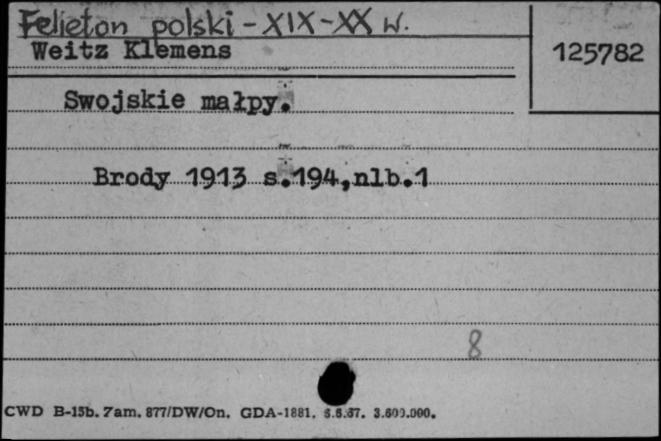 Felieton polski - XIX-XX w.
Weitz Klemens
125782
Swojskie małpy.
Brody 1913 s.194,nlb.1
8
CWD B-15b. Zam. 877/DW/On. GDA-1881. 6.6.67. 3.600.000.